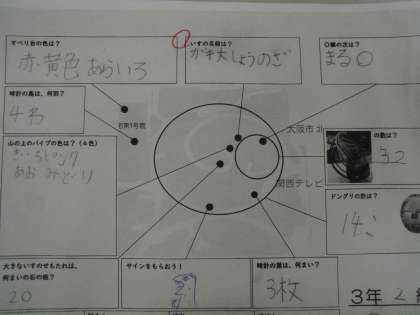 すべり台の色は?
赤 黄色 あらいろ
いすの名前は?
しょうのざ
○葉の次は?
まる○
時計の黒は、何羽?
4わ
大阪市北
の数は?
32
山の上のパイプの色は?(4色)
ピンク
あお みどり
関西テレビ
ドングリの数は?
14こ
大きないすのせもたれは、
何まいの石の板?
20
サインをもらおう!
時計の葉は、何まい?
3枚
3年 2